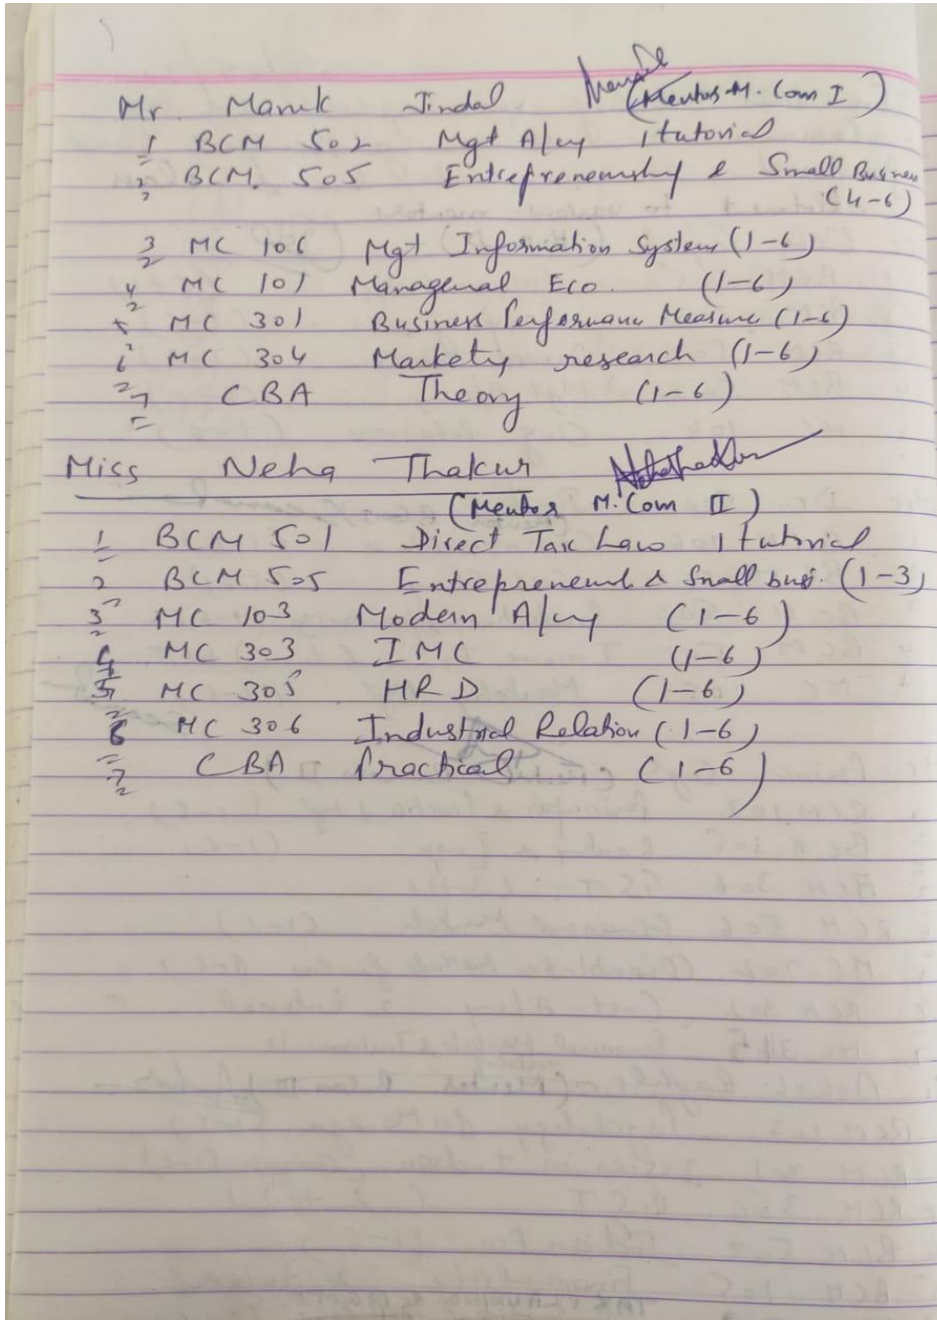 Mr. Manik Jindal (Mentor M. Com I)
1 BCM 502 Mgt A/cy 1 tutorial
2 BCM. 505 Entrepreneurship & Small Business
(4-6)
3 MC 106 Mgt Information System (1-6)
4 MC 101 Managerial Eco. (1-6)
5 MC 301 Business Performance Measure (1-6)
6 MC 304 Marketing research (1-6)
7 CBA Theory (1-6)
Miss Neha Thakur
(Mentor M. Com II)
1 BCM 501 Direct Tax Law 1 tutorial
2 BCM 505 Entrepreneur & Small busi. (1-3)
3 MC 103 Modern A/cy (1-6)
4 MC 303 IMC (1-6)
5 MC 305 HRD (1-6)
6 MC 306 Industrial Relation (1-6)
7 CBA Practical (1-6)